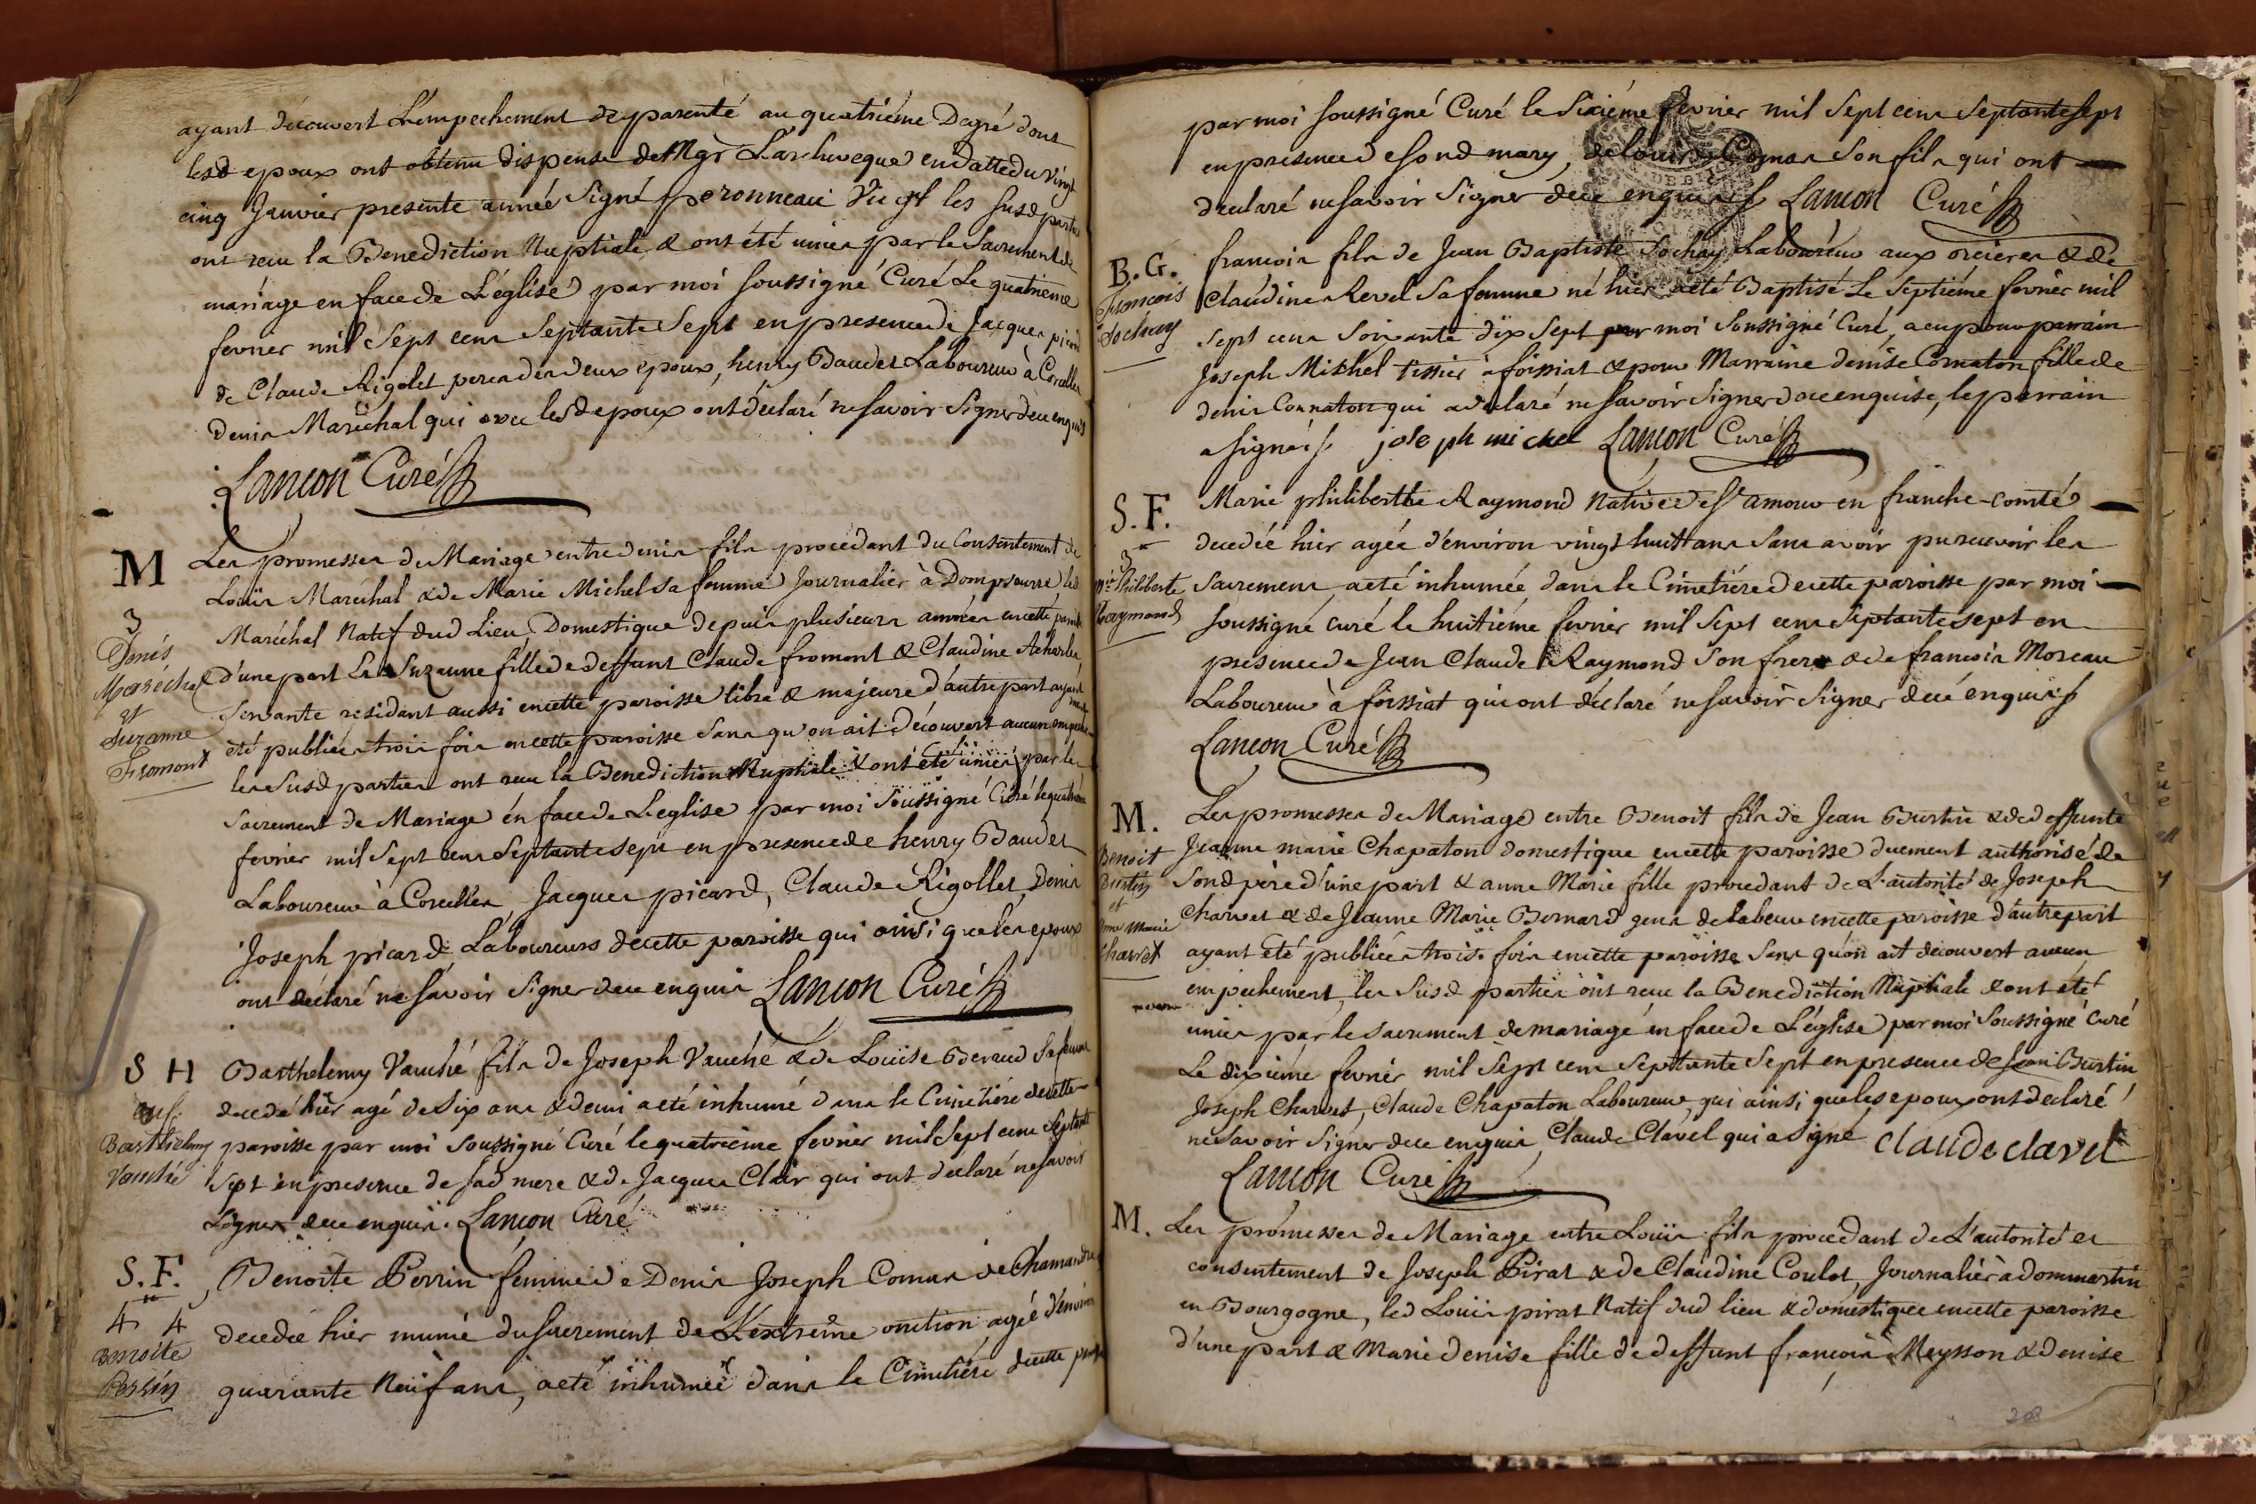 ayant découvert L'empechement de parenté au quatriéme Degré dont
lesd epoux ont obtenu dispense de Mgr L'archeveque en datte du vingt
cinq Janvier presente année Signé peronneau les susd parties
ont recu la Benediction Nuptiale & ont été unies par le Sacrement de
mariage en face de L'église par moi soussigné Curé Le quatrieme
fevrier mil Sept cens Septante Sept en presence de Jacques picard
de Claude Rigolet peres des deux epoux, henry Baudet Laboureur à
Denis Maréchal qui avec lesd epoux ont déclaré ne savoir Signer de ce enquis
Lancon Curé
M Les promesses de Mariage entre denis fils procedant du Consentement de
Louis Maréchal & de Marie Michel sa femme Journalier à led
3 Maréchal Natif dud Lieu Domestique depuis plusieurs années en cette paroisse
Denis
Maréchal d'une part & Suzanne fille de deffunt Claude fromont & Claudine
et Servante residant aussi en cette paroisse libre & majeure d'autre part ayant
Suzanne été publiées trois fois en cette paroisse sans qu'on ait découvert aucun empeche
Fromont les Susd parties ont recu la Benediction Nuptiale & ont été unies par le
Sacrement de Mariage en face de L'eglise par moi soussigné Curé le quatrieme
fevrier mil Sept cens Septante Sept en presence de henry Baudet
Laboureur à Jacques picard, Claude Rigollet, Denis
Joseph picard, Laboureurs de cette paroisse qui ainsi que les epoux
ont déclaré ne savoir Signer de ce enquis Lancon Curé
S H Barthelemy Vauché fils de Joseph Vauché & de Louise sa femme
decedé hier agé de Six ans & demi a été inhumé dans le Cimetiére de cette
Barthelemy paroisse par moi Soussigné Curé le quatrieme fevrier mil Sept cens Septante
Vauché Sept en presence de sad mere & de Jacques Clair qui ont declaré ne savoir
Signer de ce enquis. Lancon Curé
S. F. Benoite Perrin femme de Denis Joseph Comas de
4 4 decedée hier munie du sacrement de L'extreme onction agée d'environ
Benoite
Perrin quarante Neuf ans, a été inhumée dans le Cimetiére de cette paroisse
par moi soussigné Curé le Sixiéme fevrier mil Sept cens Septante Sept
en presence de sond mary, de Louis Comas son fils qui ont
déclaré ne savoir Signer de ce enquis Lancon Curé
B. G. francois fils de Jean Baptiste Sochay Laboureur aux orcieres & de
François Claudine Revel Sa femme né hier a été Baptisé Le Septiéme fevrier mil
Sochay Sept cens Soixante dix Sept par moi Soussigné Curé, a eu pour parrain
Joseph Michel tissier à foissiat & pour Marraine denise Connaton fille de
denis Connaton qui a declaré ne savoir Signer de ce enquise, le parrain
a signé joseph michel Lancon Curé
S. F. Marie philiberthe Raymond Native de St amour en franche-comté
decedée hier agée d'environ vingt huit ans sans avoir pu recevoir les
3
Mie Philiberte Sacremens, a été inhumée dans le Cimetiére de cette paroisse par moi
Raymond soussigné curé le huitiéme fevrier mil Sept cens Septante sept en
presence de Jean Claude Raymond Son frere & de francois Moreau
Laboureur à foissiat qui ont déclaré ne savoir Signer de ce enquis
Lancon Curé
M. Les promesses de Mariage entre Benoit fils de Jean Burtin & de deffunte
Benoit Jeanne marie Chapaton domestique en cette paroisse duement authorisé de
Burtin Sond pere d'une part & anne Marie fille procedant de L'autorité de Joseph
et
anne Marie Charvet & de Jeanne Marie Bernard gens de labeur en cette paroisse d'autre part
Charvet ayant été publiées trois fois en cette paroisse Sans qu'on ait découvert aucun
empechement, les Susd parties ont recu la Benediction Nuptiale & ont été
unies par le sacrement de mariage en face de L'église par moi Soussigné Curé
Le dixiéme fevrier mil Sept cens Septante Sept en presence de Jean Burtin
Joseph Charvet, Claude Chapaton Laboureurs, qui ainsi que les epoux ont déclaré
ne savoir Signer de ce enquis, Claude Clavel qui a signé claude clavel
Lancon Curé
M. Les promesses de Mariage entre Louis fils procedant de L'autorité et
consentement de Joseph Pirat & de Claudine Coulot, Journalier à dommartin
en Bourgogne, led Louis pirat Natif dud lieu & domestique en cette paroisse
d'une part & Marie denise fille de deffunt francois Meysson & denise
208